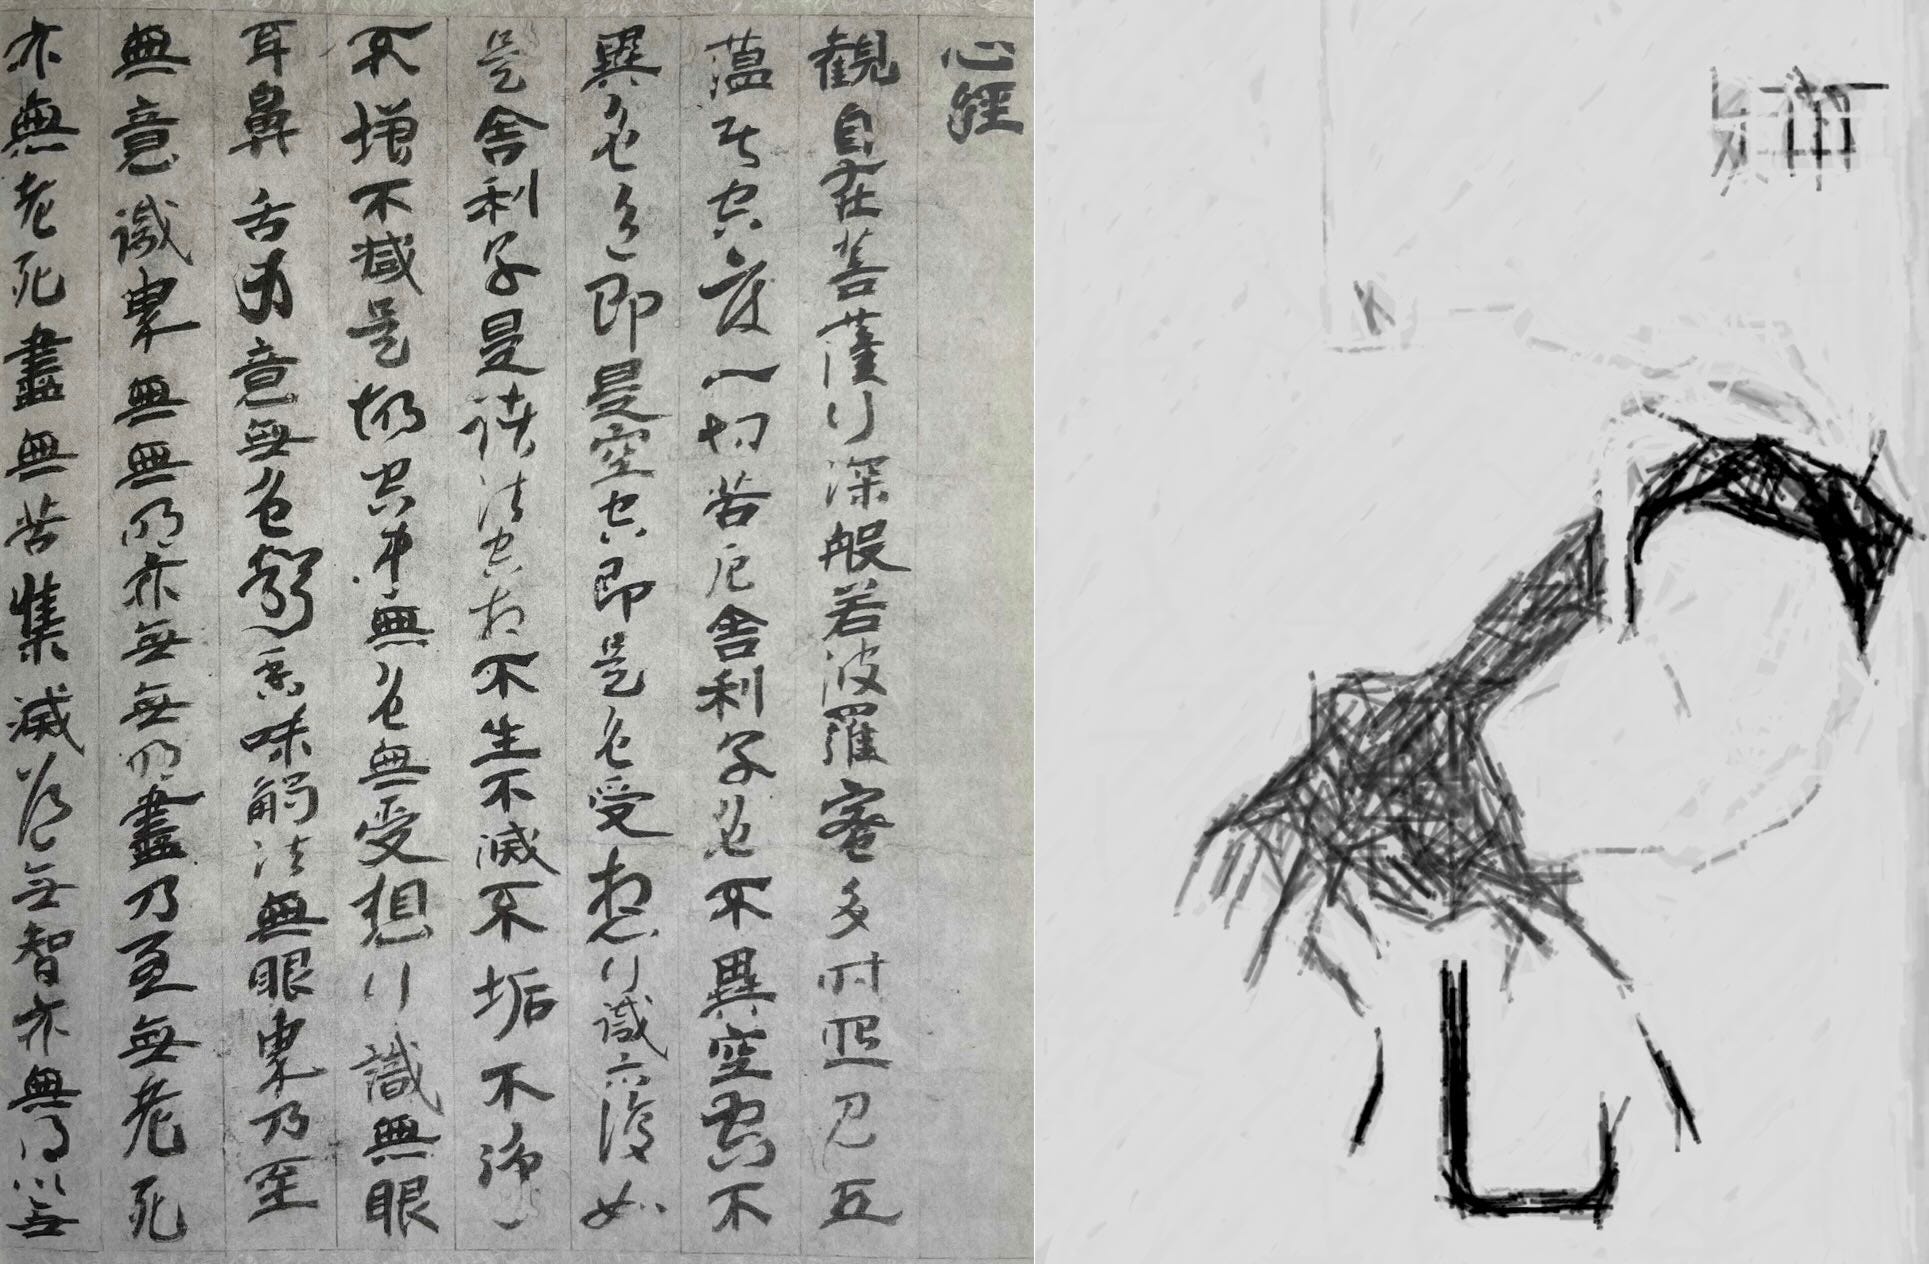 心經
觀自在菩薩行深般若波羅蜜多時照見五
蘊皆空度一切苦厄舍利子色不異空空不
異色色即是空空即是色受想行識亦復如
是舍利子是諸法空相不生不滅不垢不淨
不增不減是故空中無色無受想行識無眼
耳鼻舌身意無色聲香味觸法無眼界乃至
無意識界無無明亦無無明盡乃至無老死
亦無老死盡無苦集滅道無智亦無得以無